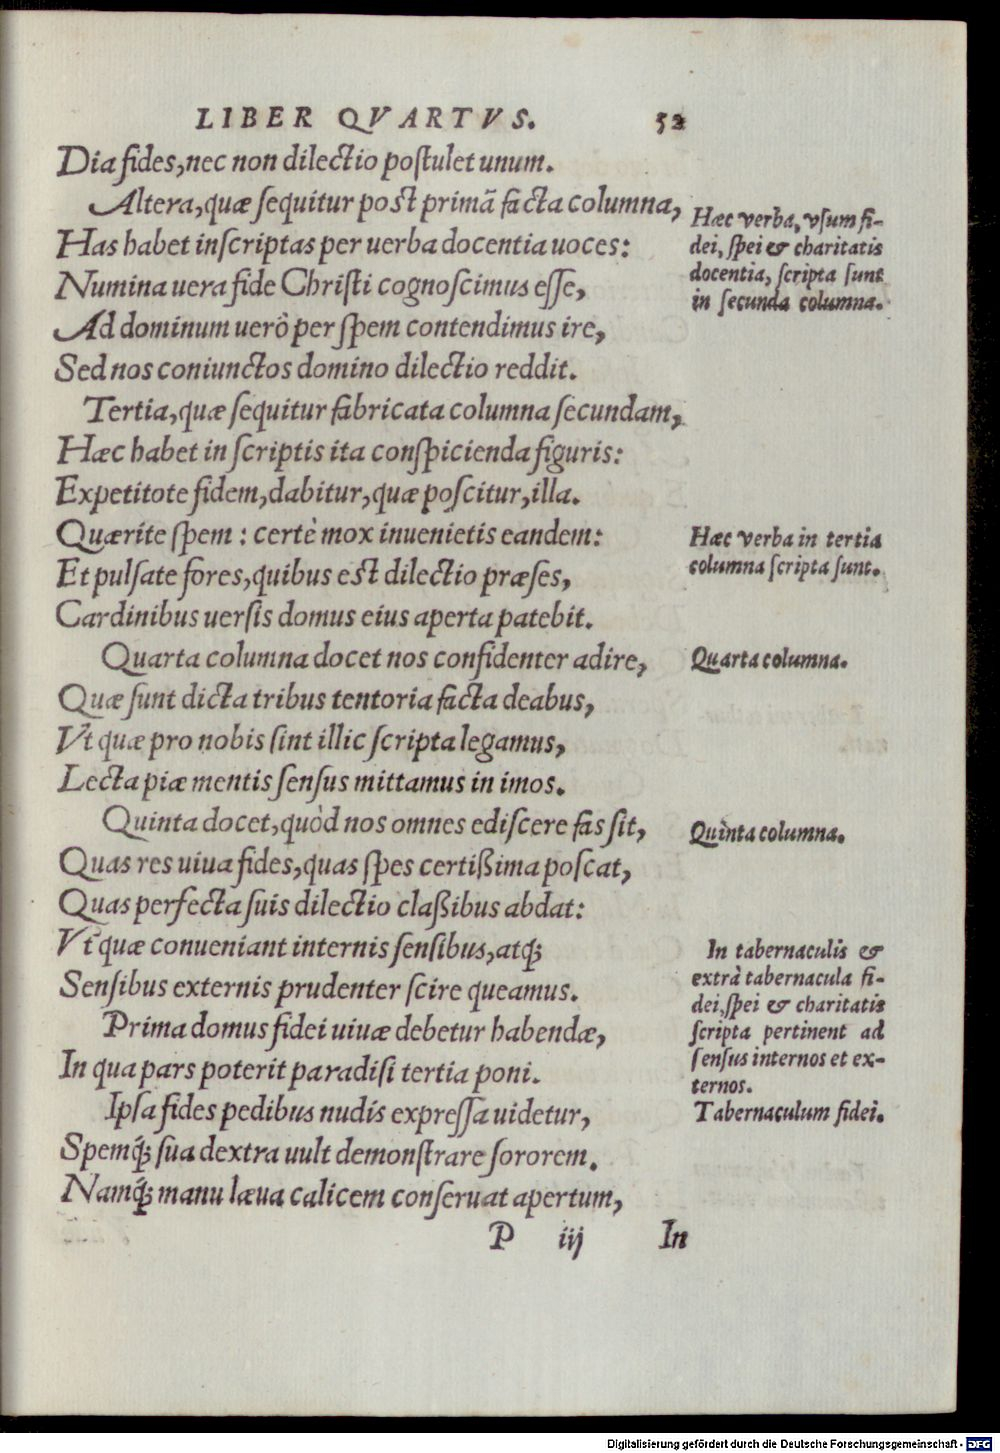 LIBER QVARTVS. 52
Dia fides, nec non dilectio poſtulet unum.
Altera, quæ ſequitur poſt primã facta columna,
Has habet inſcriptas per uerba docentia uoces:
Numina uera fide Chriſti cognoſcimus eſſe,
Ad dominum uerò per ſpem contendimus ire,
Sed nos coniunctos domino dilectio reddit.
Tertia, quæ ſequitur fabricata columna ſecundam,
Hæc habet in ſcriptis ita conſpicienda figuris:
Expetitote fidem, dabitur, quæ poſcitur, illa.
Quærite ſpem : certè mox inuenietis eandem:
Et pulſate fores, quibus eſt dilectio præſes,
Cardinibus uerſis domus eius aperta patebit.
Quarta columna docet nos confidenter adire,
Quæ ſunt dicta tribus tentoria facta deabus,
Vt quæ pro nobis ſint illic ſcripta legamus,
Lecta piæ mentis ſenſus mittamus in imos.
Quinta docet, quòd nos omnes ediſcere fas ſit,
Quas res uiua fides, quas ſpes certißima poſcat,
Quas perfecta ſuis dilectio claßibus abdat:
Vt quæ conueniant internis ſenſibus, atq;
Senſibus externis prudenter ſcire queamus.
Prima domus fidei uiuæ debetur habendæ,
In qua pars poterit paradiſi tertia poni.
Ipſa fides pedibus nudis expreſſa uidetur,
Spemq́; ſua dextra uult demonſtrare ſororem.
Namq́; manu læua calicem conſeruat apertum,
P iij In
Hæc verba, vſum fi-
dei, ſpei & charitatis
docentia, ſcripta ſunt
in ſecunda columna.
Hæc verba in tertia
columna ſcripta ſunt.
Quarta columna.
Quinta columna.
In tabernaculis &
extrà tabernacula fi-
dei, ſpei & charitatis
ſcripta pertinent ad
ſenſus internos et ex-
ternos.
Tabernaculum fidei.
Digitalisierung gefördert durch die Deutsche Forschungsgemeinschaft - DFG